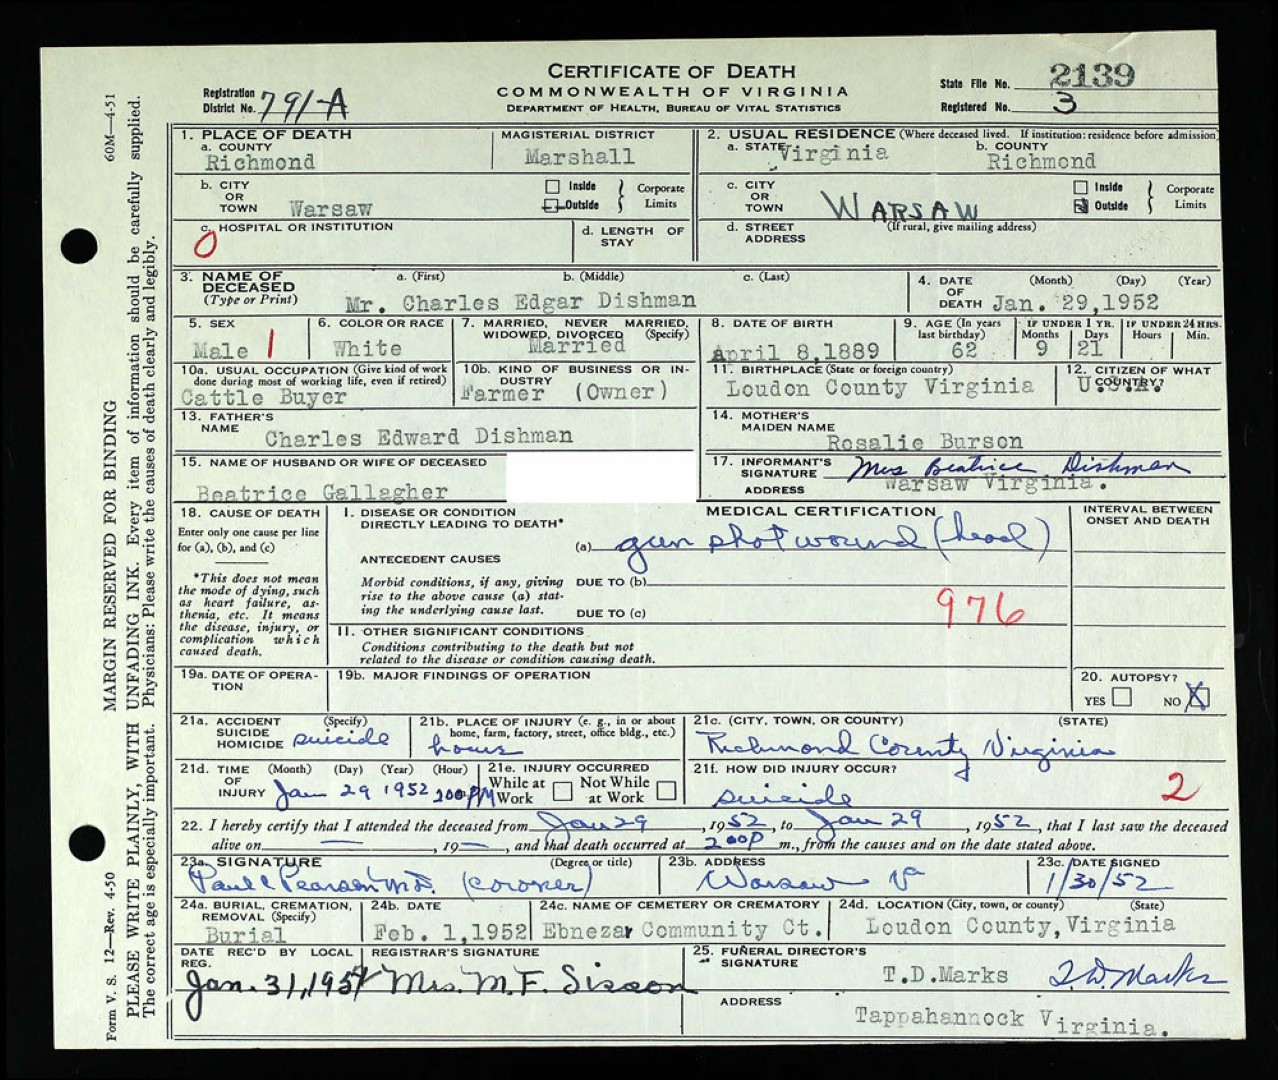 CERTIFICATE OF DEATH
COMMONWEALTH OF VIRGINIA
DEPARTMENT OF HEALTH, BUREAU OF VITAL STATISTICS
Registration District No. 791-A
State File No. 2139
Registered No. 3
1. PLACE OF DEATH
a. COUNTY Richmond
MAGISTERIAL DISTRICT Marshall
2. USUAL RESIDENCE (Where deceased lived. If institution: residence before admission)
a. STATE Virginia
b. COUNTY Richmond
b. CITY OR TOWN Warsaw
Inside
Outside
Corporate Limits
c. CITY OR TOWN WARSAW
Inside
Outside
Corporate Limits
c. HOSPITAL OR INSTITUTION
0
d. LENGTH OF STAY
d. STREET ADDRESS
(If rural, give mailing address)
3. NAME OF DECEASED (Type or Print)
a. (First) b. (Middle) c. (Last)
Mr. Charles Edgar Dishman
4. DATE OF DEATH (Month) (Day) (Year)
Jan. 29,1952
5. SEX Male 1
6. COLOR OR RACE White
7. MARRIED, NEVER MARRIED, WIDOWED, DIVORCED (Specify) Married
8. DATE OF BIRTH April 8,1889
9. AGE (In years last birthday) 62
IF UNDER 1 YR. Months 9 Days 21
IF UNDER 24 HRS. Hours Min.
10a. USUAL OCCUPATION (Give kind of work done during most of working life, even if retired)
Cattle Buyer
10b. KIND OF BUSINESS OR INDUSTRY
Farmer (Owner)
11. BIRTHPLACE (State or foreign country)
Loudon County Virginia
12. CITIZEN OF WHAT COUNTRY?
U.S.A.
13. FATHER'S NAME
Charles Edward Dishman
14. MOTHER'S MAIDEN NAME
Rosalie Burson
15. NAME OF HUSBAND OR WIFE OF DECEASED
Beatrice Gallagher
17. INFORMANT'S SIGNATURE Mrs Beatrice Dishman
ADDRESS Warsaw Virginia.
18. CAUSE OF DEATH
Enter only one cause per line for (a), (b), and (c)
*This does not mean the mode of dying, such as heart failure, asthenia, etc. It means the disease, injury, or complication which caused death.
MEDICAL CERTIFICATION
INTERVAL BETWEEN ONSET AND DEATH
I. DISEASE OR CONDITION DIRECTLY LEADING TO DEATH*
(a) gun shot wound (head)
ANTECEDENT CAUSES
Morbid conditions, if any, giving rise to the above cause (a) stating the underlying cause last.
DUE TO (b)
DUE TO (c)
976
II. OTHER SIGNIFICANT CONDITIONS
Conditions contributing to the death but not related to the disease or condition causing death.
19a. DATE OF OPERATION
19b. MAJOR FINDINGS OF OPERATION
20. AUTOPSY?
YES NO X
21a. ACCIDENT SUICIDE HOMICIDE (Specify) suicide
21b. PLACE OF INJURY (e. g., in or about home, farm, factory, street, office bldg., etc.)
21c. (CITY, TOWN, OR COUNTY) (STATE)
Richmond County Virginia
21d. TIME OF INJURY (Month) (Day) (Year) (Hour)
Jan 29 1952 200 PM
21e. INJURY OCCURRED
While at Work
Not While at Work
21f. HOW DID INJURY OCCUR?
suicide
2
22. I hereby certify that I attended the deceased from Jan 29, 1952, to Jan 29, 1952, that I last saw the deceased
alive on —, 19—, and that death occurred at 200P m., from the causes and on the date stated above.
23a. SIGNATURE (Degree or title)
Paul C Pearson M.D. (coroner)
23b. ADDRESS
Warsaw Va
23c. DATE SIGNED
1/30/52
24a. BURIAL, CREMATION, REMOVAL (Specify)
Burial
24b. DATE
Feb. 1,1952
24c. NAME OF CEMETERY OR CREMATORY
Ebnezar Community Ct.
24d. LOCATION (City, town, or county) (State)
Loudon County, Virginia
DATE REC'D BY LOCAL REG.
Jan. 31, 195
REGISTRAR'S SIGNATURE
Mrs. M.F. Sisson
25. FUNERAL DIRECTOR'S SIGNATURE
T.D.Marks T.D. Marks
ADDRESS
Tappahannock Virginia.
Form V. S. 12—Rev. 4-50
60M—4-51
MARGIN RESERVED FOR BINDING
PLEASE WRITE PLAINLY, WITH UNFADING INK. Every item of information should be carefully supplied.
The correct age is especially important. Physicians: Please write the causes of death clearly and legibly.